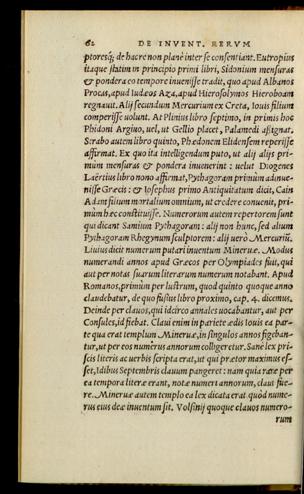 62 DE INVENT. RERVM
ptoresq́; de hac re non planè inter se consentiant. Eutropius
itaque statim in principio primi libri, Sidonium mensuras
& pondera eo tempore inuenisse tradit, quo apud Albanos
Procas, apud Iudæos Aza, apud Hierosolymos Hieroboam
regnauit. Alij secundum Mercurium ex Creta, Iouis filium
comperisse uolunt. At Plinius libro septimo, in primis hoc
Phidoni Argiuo, uel, ut Gellio placet, Palamedi aßignat.
Strabo autem libro quinto, Phædonem Elidensem reperisse
affirmat. Ex quo ita intelligendum puto, ut alij alijs pri-
mùm mensuras & pondera inuenerint: uelut Diogenes
Laërtius libro nono affirmat, Pythagoram primùm adinue-
nisse Græcis: & Iosephus primo Antiquitatum dicit, Cain
Adam filium mortalium omnium, ut credere conuenit, pri-
mùm hæc constituisse. Numerorum autem repertorem sunt
qui dicant Samium Pythagoram: alij non hunc, sed alium
Pythagoram Rhegynum sculptorem: alij uerò Mercuriũ.
Liuius dicit numerum putari inuentum Mineruæ. Modus
numerandi annos apud Græcos per Olympiades fuit, qui
aut per notas suarum literarum numerum notabant. Apud
Romanos, primùm per lustrum, quod quinto quoque anno
claudebatur, de quo fusius libro proximo, cap. 4. dicemus.
Deinde per clauos, qui idcirco annales uocabantur, aut per
Consules, id fiebat. Claui enim in pariete ædis Iouis ea par-
te qua erat templum Mineruæ, in singulos annos figeban-
tur, ut per eos numerus annorum colligeretur. Sanè lex pri-
scis literis ac uerbis scripta erat, ut qui prætor maximus es-
set, Idibus Septembris clauum pangeret: nam quia raræ per
ea tempora literæ erant, notæ numeri annorum, claui fue-
re. Mineruæ autem templo ea lex dicata erat quòd nume-
rus eius deæ inuentum sit. Volsinij quoque clauos numero-
rum